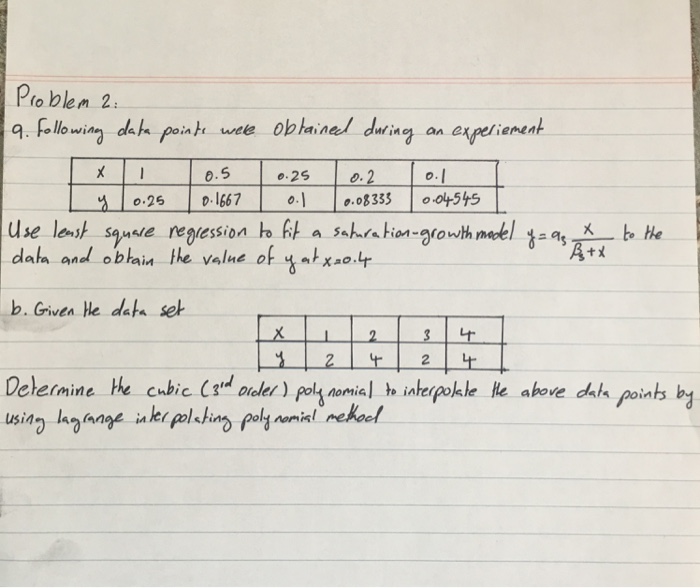 Problem 2:
a. Following data points were obtained during an experiement
x 1 0.5 0.25 0.2 0.1
y 0.25 0.1667 0.1 0.08333 0.04545
Use least square regression to fit a saturation-growth model y = a₃ x / (β₃ + x) to the
data and obtain the value of y at x=0.4
b. Given the data set
x 1 2 3 4
y 2 4 2 4
Determine the cubic (3rd order) polynomial to interpolate the above data points by
using lagrange interpolating polynomial method